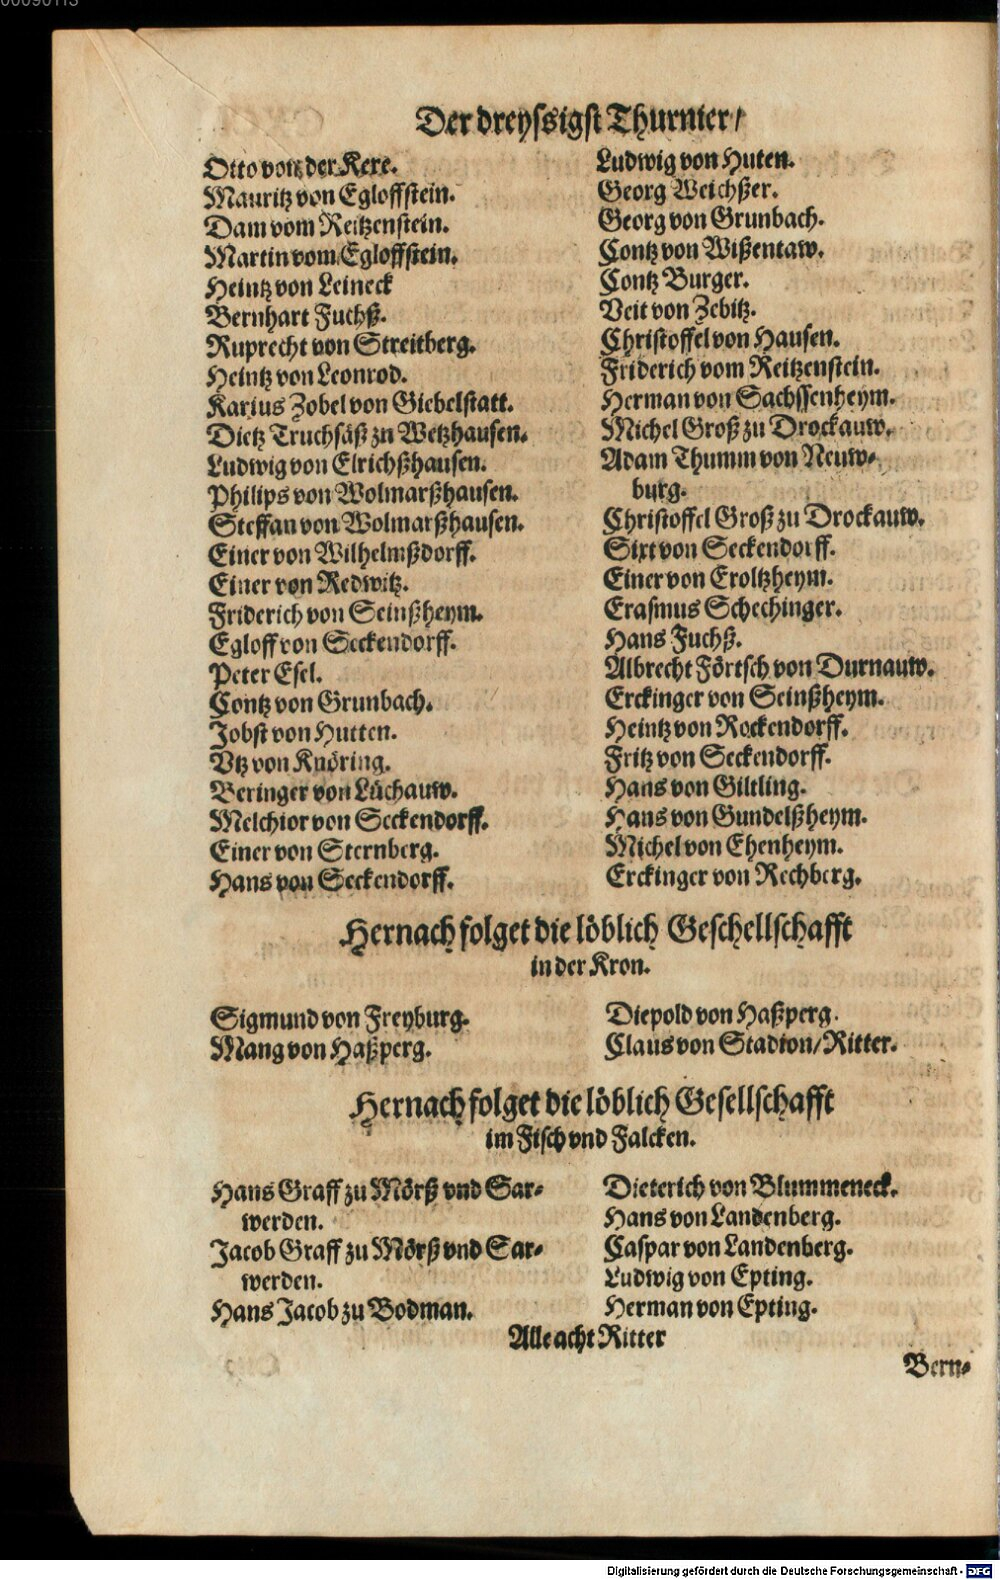 Der dreyssigst Thurnier/
Otto von der Kere.
Mauritz von Egloffstein.
Dam vom Reitzenstein.
Martin vom Egloffstein.
Heintz von Leineck
Bernhart Fuchß.
Ruprecht von Streitberg.
Heintz von Leonrod.
Karius Zobel von Giebelstatt.
Dietz Truchsäß zu Wetzhausen.
Ludwig von Elrichßhausen.
Philips von Wolmarßhausen.
Steffan von Wolmarßhausen.
Einer von Wilhelmßdorff.
Einer von Redwitz.
Friderich von Seinßheym.
Egloff von Seckendorff.
Peter Esel.
Contz von Grunbach.
Jobst von Hutten.
Vtz von Knöring.
Beringer von Lüchauw.
Melchior von Seckendorff.
Einer von Sternberg.
Hans von Seckendorff.
Ludwig von Huten.
Georg Weichßer.
Georg von Grunbach.
Contz von Wißentaw.
Contz Burger.
Veit von Zebitz.
Christoffel von Hausen.
Friderich vom Reitzenstein.
Herman von Sachssenheym.
Michel Groß zu Drockauw.
Adam Thumm von Neuw-
burg.
Christoffel Groß zu Drockauw.
Sixt von Seckendorff.
Einer von Eroltzheym.
Erasmus Schechinger.
Hans Fuchß.
Albrecht Förtsch von Durnauw.
Erckinger von Seinßheym.
Heintz von Rockendorff.
Fritz von Seckendorff.
Hans von Giltling.
Hans von Gundelßheym.
Michel von Ehenheym.
Erckinger von Rechberg.
Hernach folget die löblich Geschellschafft
in der Kron.
Sigmund von Freyburg.
Mang von Haßperg.
Diepold von Haßperg.
Claus von Stadion/Ritter.
Hernach folget die löblich Gesellschafft
im Fisch vnd Falcken.
Hans Graff zu Mörß vnd Sar-
werden.
Jacob Graff zu Mörß vnd Sar-
werden.
Hans Jacob zu Bodman.
Dieterich von Blummeneck.
Hans von Landenberg.
Caspar von Landenberg.
Ludwig von Epting.
Herman von Epting.
Alle acht Ritter
Bern-
Digitalisierung gefördert durch die Deutsche Forschungsgemeinschaft - DFG